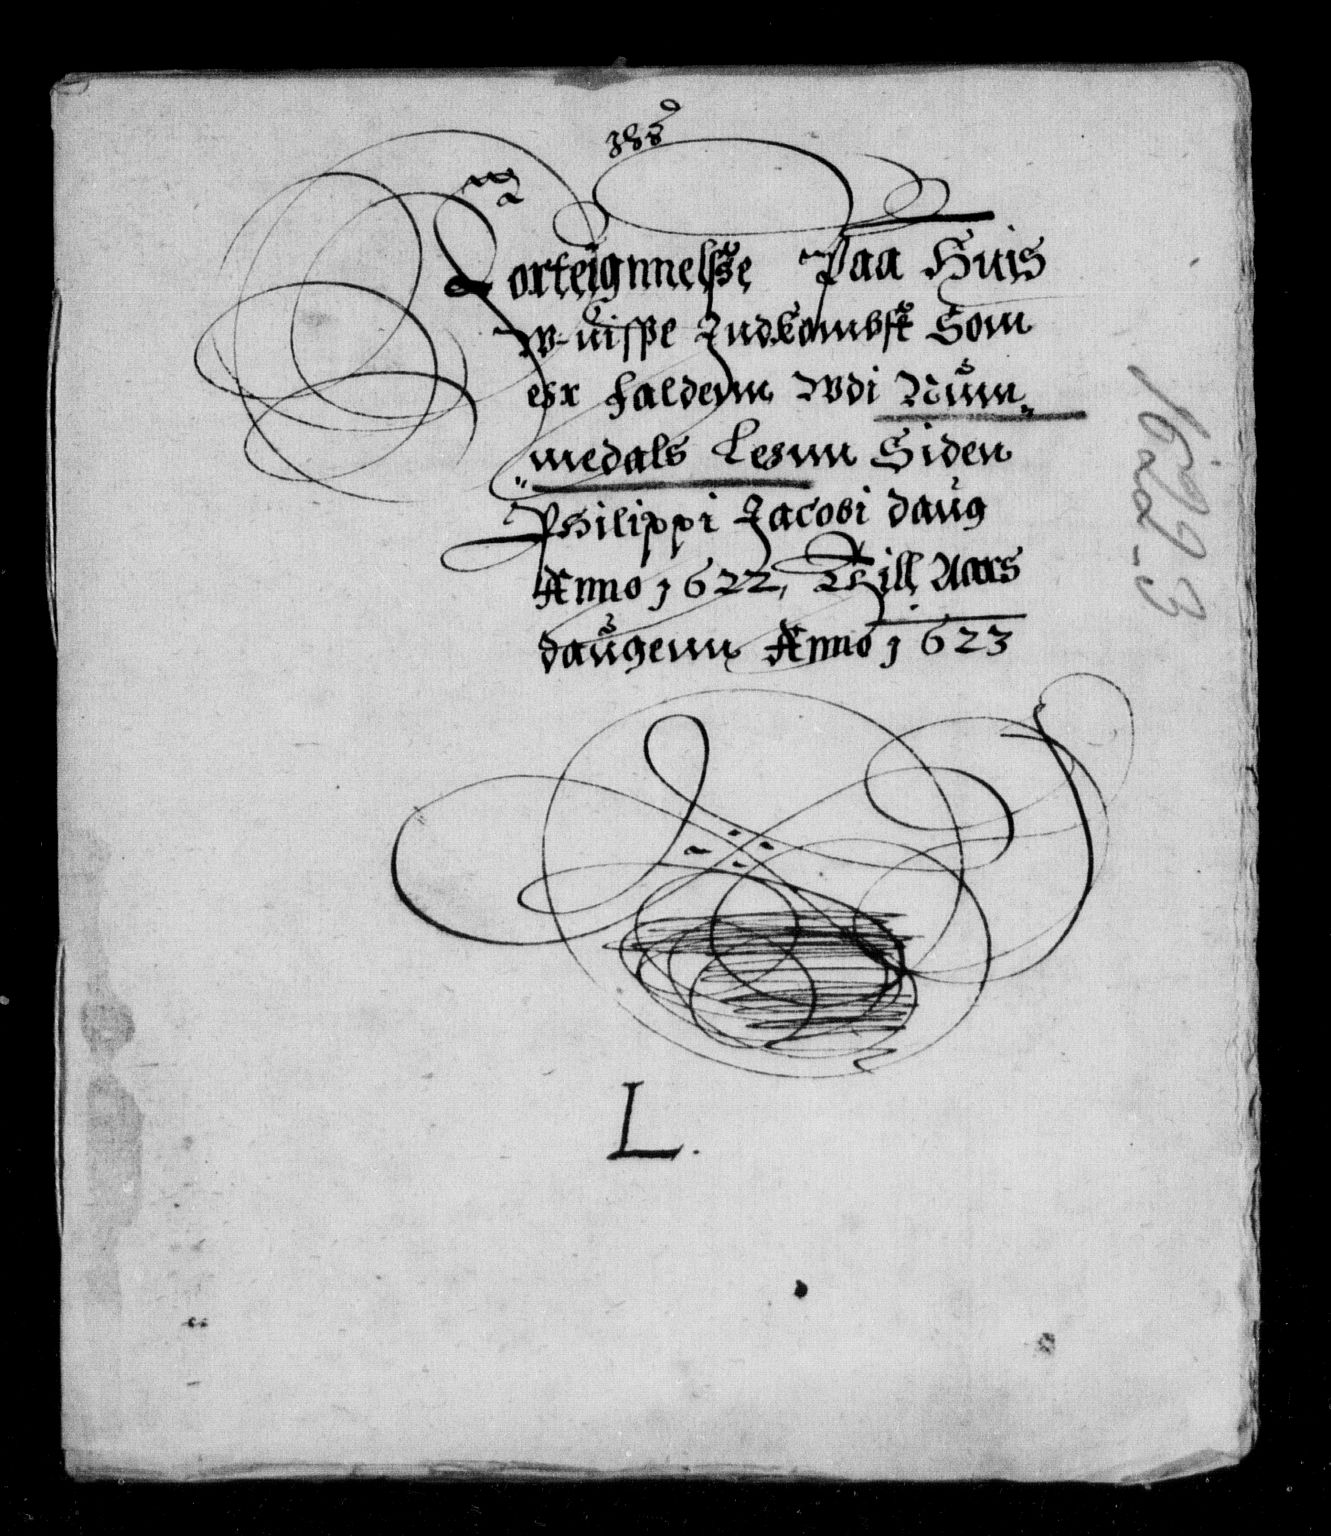 Forteignnelsße Paa Huis
W-uisße Indkombst Som
ehr faldenn Wdi Num„
„medals Lehnn Siden
Philippi Jacobi daug
Anno 1622, Till Aars
daugenn Anno 1623
1622-3
L.